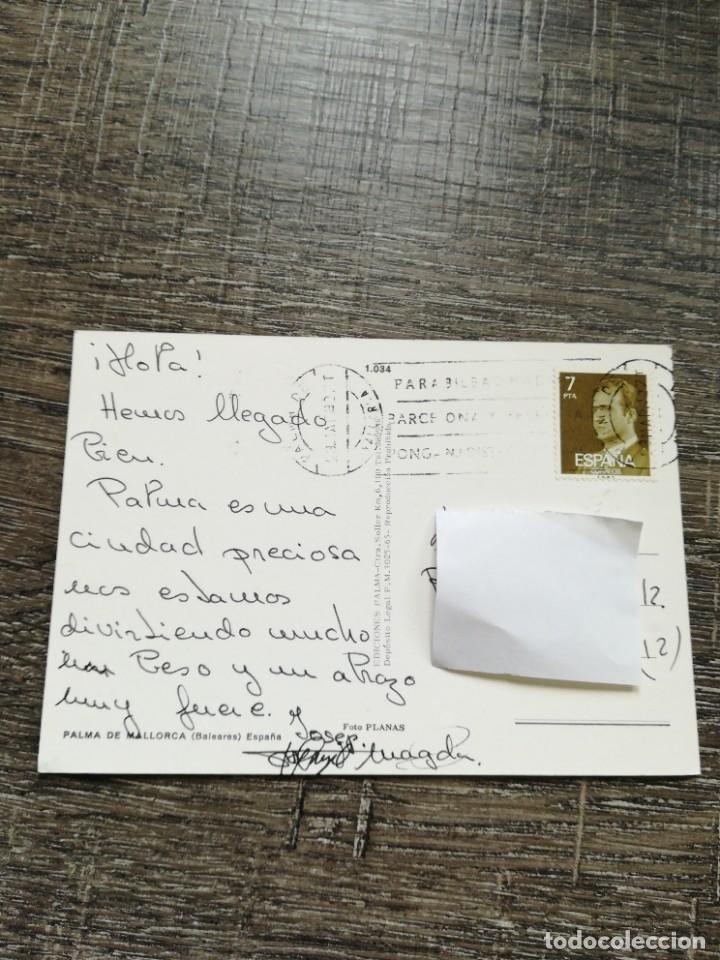 ¡Hola!
Hemos llegado
Bien.
Palma es una
ciudad preciosa
nos estamos
divirtiendo mucho
Beso y un abrazo
muy fuerte.
Josep. Magda.
PALMA DE MALLORCA (Baleares) España
Foto PLANAS
1.034
EDICIONES PALMA-Ctra. Soller Km, 6,100 Tel.
Depósito Legal P.M. 3025-65- Reproducción Prohibida
PARA BILBAO
BARCELONA Y
PONGA
7
PTA
ESPAÑA
12
12)
todocoleccion
todocoleccion.net